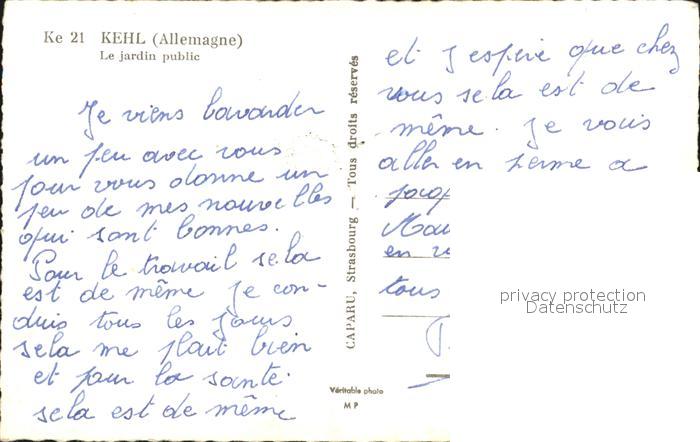 Ke 21 KEHL (Allemagne)
Le jardin public
Je viens bavarder
un peu avec vous
pour vous donne un
peu de mes nouvelles
qui sont bonnes.
Pour le travail sela
est de même je con-
duis tous les jours
sela me plait bien
et pour la santé
sela est de même
CAPARU, Strasbourg — Tous droits réservés
Véritable photo
M P
et j espère que chez
vous sela est de
même. je vous
aller en ferme a
en
tous
privacy protection
Datenschutz